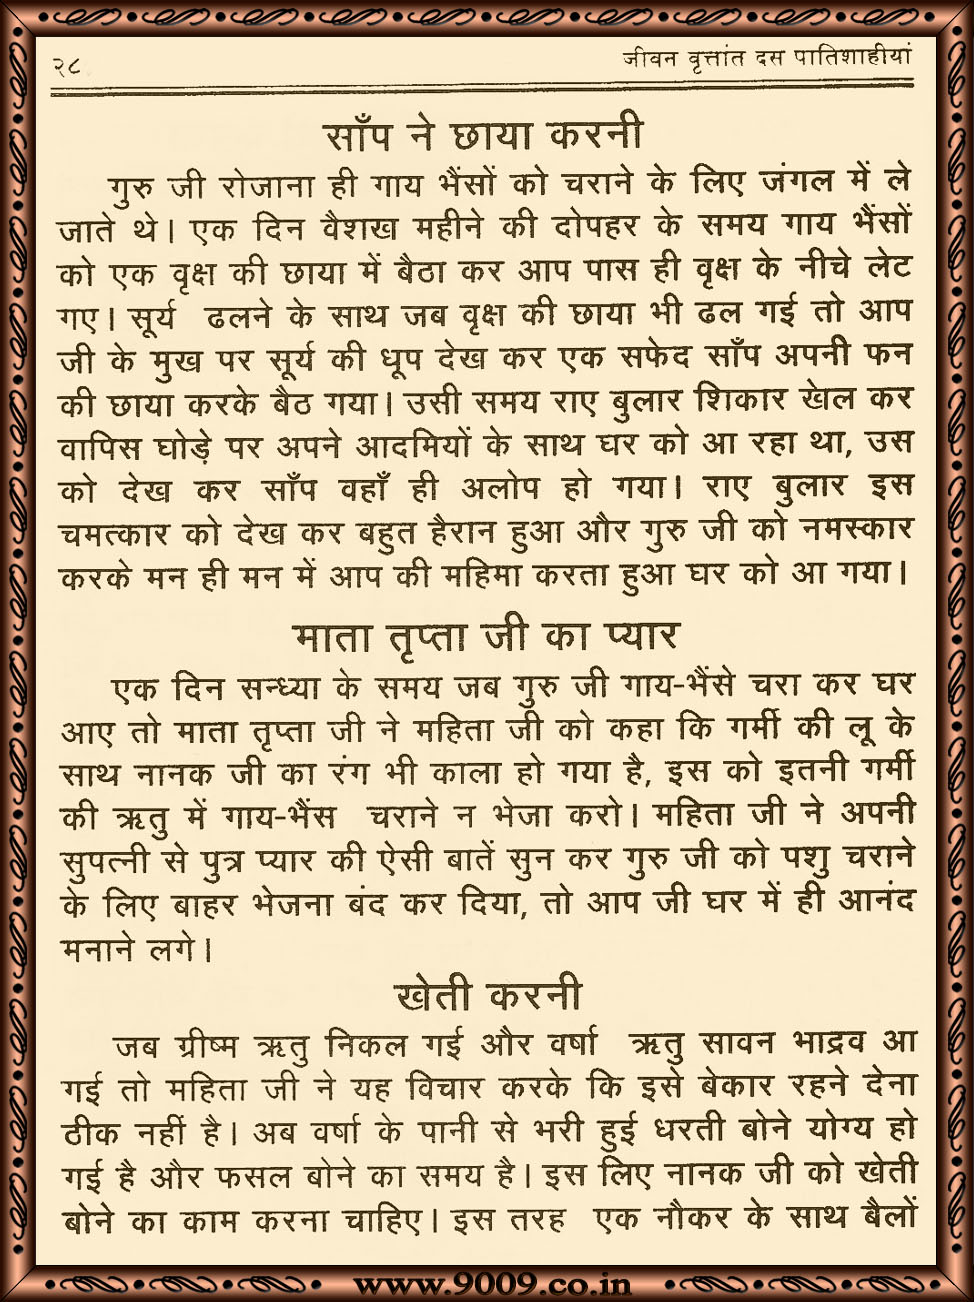 २८ जीवन वृत्तांत दस पातिशाहीयां
साँप ने छाया करनी
गुरु जी रोजाना ही गाय भैंसों को चराने के लिए जंगल में ले
जाते थे। एक दिन वैशख महीने की दोपहर के समय गाय भैंसों
को एक वृक्ष की छाया में बैठा कर आप पास ही वृक्ष के नीचे लेट
गए। सूर्य ढलने के साथ जब वृक्ष की छाया भी ढल गई तो आप
जी के मुख पर सूर्य की धूप देख कर एक सफेद साँप अपनी फन
की छाया करके बैठ गया। उसी समय राए बुलार शिकार खेल कर
वापिस घोड़े पर अपने आदमियों के साथ घर को आ रहा था, उस
को देख कर साँप वहाँ ही अलोप हो गया। राए बुलार इस
चमत्कार को देख कर बहुत हैरान हुआ और गुरु जी को नमस्कार
करके मन ही मन में आप की महिमा करता हुआ घर को आ गया।
माता तृप्ता जी का प्यार
एक दिन सन्ध्या के समय जब गुरु जी गाय-भैंसे चरा कर घर
आए तो माता तृप्ता जी ने महिता जी को कहा कि गर्मी की लू के
साथ नानक जी का रंग भी काला हो गया है, इस को इतनी गर्मी
की ऋतु में गाय-भैंस चराने न भेजा करो। महिता जी ने अपनी
सुपत्नी से पुत्र प्यार की ऐसी बातें सुन कर गुरु जी को पशु चराने
के लिए बाहर भेजना बंद कर दिया, तो आप जी घर में ही आनंद
मनाने लगे।
खेती करनी
जब ग्रीष्म ऋतु निकल गई और वर्षा ऋतु सावन भाद्रव आ
गई तो महिता जी ने यह विचार करके कि इसे बेकार रहने देना
ठीक नहीं है। अब वर्षा के पानी से भरी हुई धरती बोने योग्य हो
गई है और फसल बोने का समय है। इस लिए नानक जी को खेती
बोने का काम करना चाहिए। इस तरह एक नौकर के साथ बैलों
www.9009.co.in